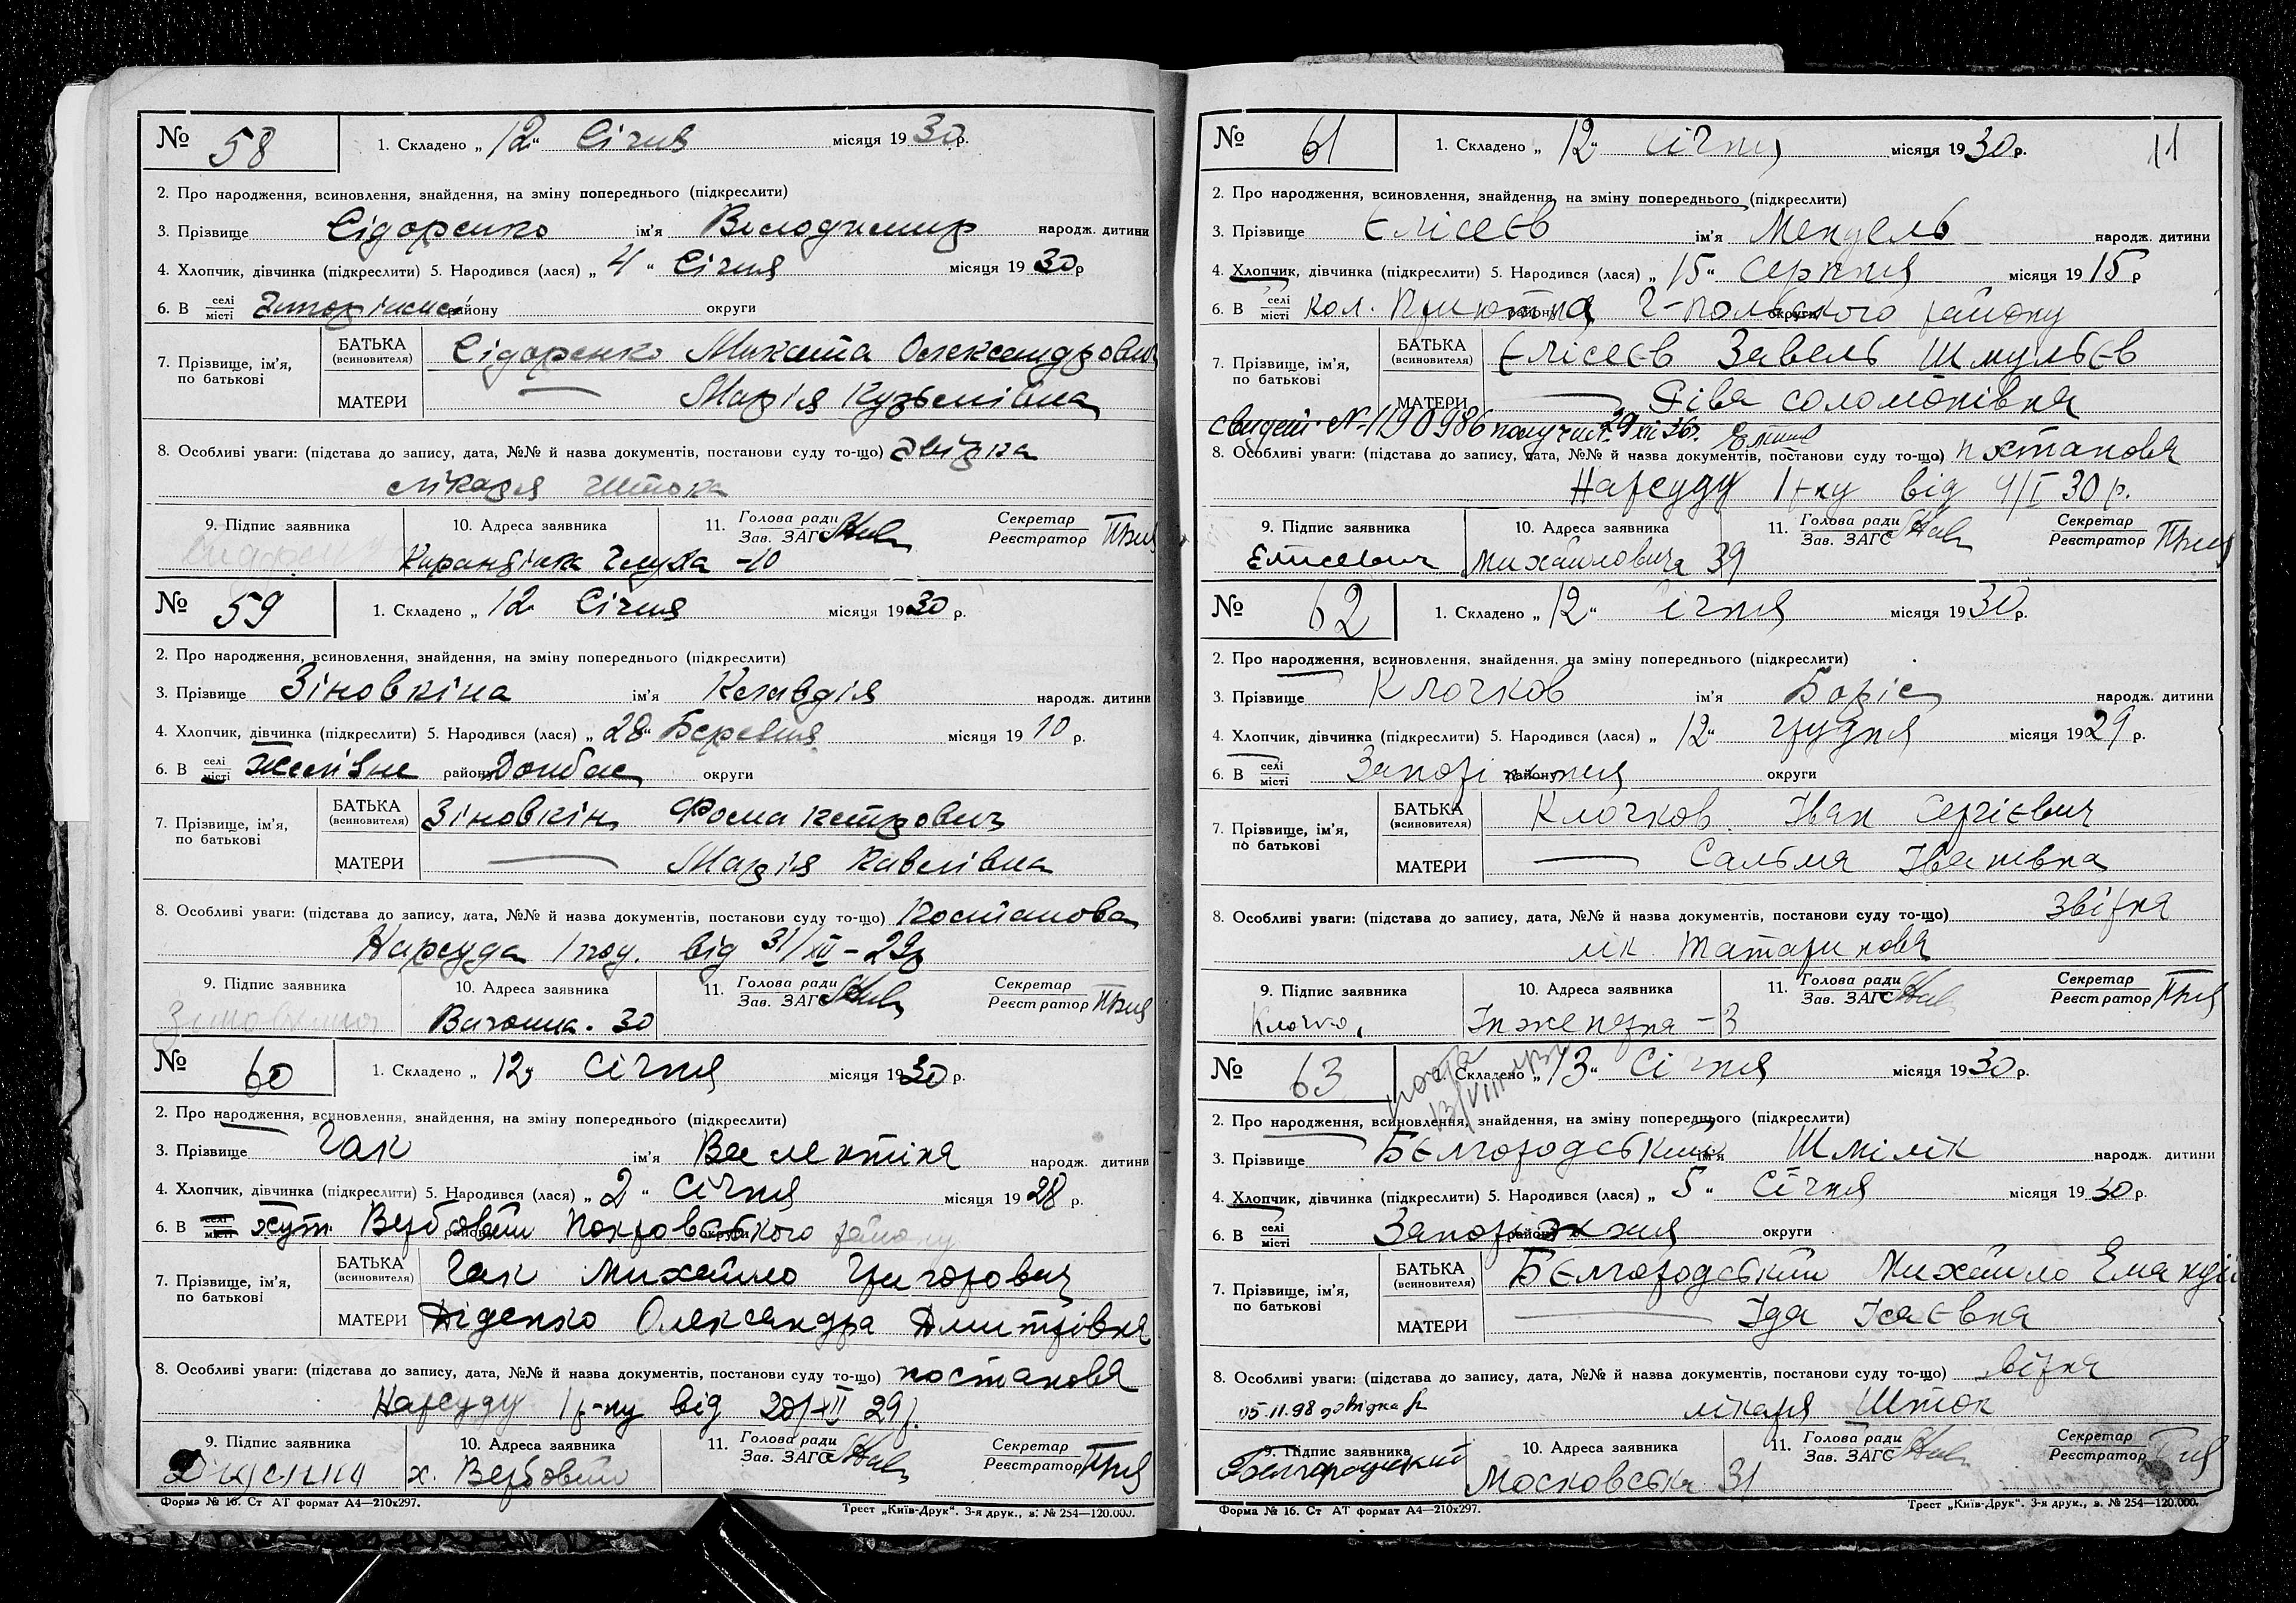 № 58 1. Складено „ 12 “ Січня місяця 1930 р.
2. Про народження, всиновлення, знайдення, на зміну попереднього (підкреслити)
3. Прізвище Сідоренко ім’я Володимир народж. дитини
4. Хлопчик, дівчинка (підкреслити) 5. Народився (лася) „ 4 “ Січня місяця 1930 р
6. В селі місті району округи
7. Прізвище, ім’я, по батькові БАТЬКА (всиновителя) Сідоренко Микита Олександрович
МАТЕРИ — Марія Кузьмівна
8. Особливі уваги: (підстава до запису, дата, №№ й назва документів, постанови суду то-що) звірка
лікаря Штока
9. Підпис заявника 10. Адреса заявника 11. Голова ради Зав. ЗАГС Секретар Реєстратор
10
№ 59 1. Складено „ 12 “ Січня місяця 1930 р.
2. Про народження, всиновлення, знайдення, на зміну попереднього (підкреслити)
3. Прізвище Зіновкіна ім’я Клавдія народж. дитини
4. Хлопчик, дівчинка (підкреслити) 5. Народився (лася) „ 28 “ Березня місяця 1910 р.
6. В селі місті району Донбас округи
7. Прізвище, ім’я, по батькові БАТЬКА (всиновителя) Зіновкін Фома Петрович
МАТЕРИ — Марія Павлівна
8. Особливі уваги: (підстава до запису, дата, №№ й назва документів, постанови суду то-що) Постанова
Нарсуда 1 від 31/XII – 29р
9. Підпис заявника 10. Адреса заявника 11. Голова ради Зав. ЗАГС Секретар Реєстратор
30
№ 60 1. Складено „ 12 “ Січня місяця 1930 р.
2. Про народження, всиновлення, знайдення, на зміну попереднього (підкреслити)
3. Прізвище Гак ім’я Валентіна народж. дитини
4. Хлопчик, дівчинка (підкреслити) 5. Народився (лася) „ 2 “ Січня місяця 1928 р.
6. В селі місті хут. Вербовий району Покровського округи району
7. Прізвище, ім’я, по батькові БАТЬКА (всиновителя) Гак Михайло Григорович
МАТЕРИ Діденко Олександра Дмитрівна
8. Особливі уваги: (підстава до запису, дата, №№ й назва документів, постанови суду то-що) постанова
Нарсуду 1 р-ну від 28/XII 29р.
9. Підпис заявника 10. Адреса заявника 11. Голова ради Зав. ЗАГС Секретар Реєстратор
х. Вербовий
Форма № 16. Ст АТ формат А4—210х297. Трест „Київ-Друк“. 3-я друк., в. № 254—120.000.
№ 61 1. Складено „ 12 “ Січня місяця 1930 р. 11
2. Про народження, всиновлення, знайдення, на зміну попереднього (підкреслити)
3. Прізвище Єлісеєв ім’я Мендель народж. дитини
4. Хлопчик, дівчинка (підкреслити) 5. Народився (лася) „ 15 “ Серпня місяця 1915 р
6. В селі місті кол. Приютна району Г-Польського округи району
7. Прізвище, ім’я, по батькові БАТЬКА (всиновителя) Єлісеєв Завель Шмульєв
МАТЕРИ — Ріва Соломонівна
свидет. № 1190986 получил 29 XI 36.
8. Особливі уваги: (підстава до запису, дата, №№ й назва документів, постанови суду то-що) постанова
Нарсуду 1 р-ну від 4/I 30 р.
9. Підпис заявника 10. Адреса заявника 11. Голова ради Зав. ЗАГС Секретар Реєстратор
Михайловича 39
№ 62 1. Складено „ 12 “ Січня місяця 1930 р.
2. Про народження, всиновлення, знайдення, на зміну попереднього (підкреслити)
3. Прізвище Клочков ім’я Боріс народж. дитини
4. Хлопчик, дівчинка (підкреслити) 5. Народився (лася) „ 12 “ Грудня місяця 1929 р.
6. В селі місті Запоріжжя району округи
7. Прізвище, ім’я, по батькові БАТЬКА (всиновителя) Клочков Іван Сергієвич
МАТЕРИ — Сальма Іванівна
8. Особливі уваги: (підстава до запису, дата, №№ й назва документів, постанови суду то-що) звірка
лік. Татаринова
9. Підпис заявника 10. Адреса заявника 11. Голова ради Зав. ЗАГС Секретар Реєстратор
Інженерна – 3
№ 63 1. Складено „ 13 “ Січня місяця 1930 р.
2. Про народження, всиновлення, знайдення, на зміну попереднього (підкреслити)
3. Прізвище Бєлгородський ім’я Шмілік народж. дитини
4. Хлопчик, дівчинка (підкреслити) 5. Народився (лася) „ 5 “ Січня місяця 1930 р.
6. В селі місті Запоріжжя району округи
7. Прізвище, ім’я, по батькові БАТЬКА (всиновителя) Бєлгородський Михайло
МАТЕРИ — Іда Ісаєвна
8. Особливі уваги: (підстава до запису, дата, №№ й назва документів, постанови суду то-що) звірка
05.11.98 довідка лікаря Шток
9. Підпис заявника 10. Адреса заявника 11. Голова ради Зав. ЗАГС Секретар Реєстратор
Белгородский Московська 31
Форма № 16. Ст АТ формат А4—210х297. Трест „Київ-Друк“. 3-я друк., в. № 254—120.000.